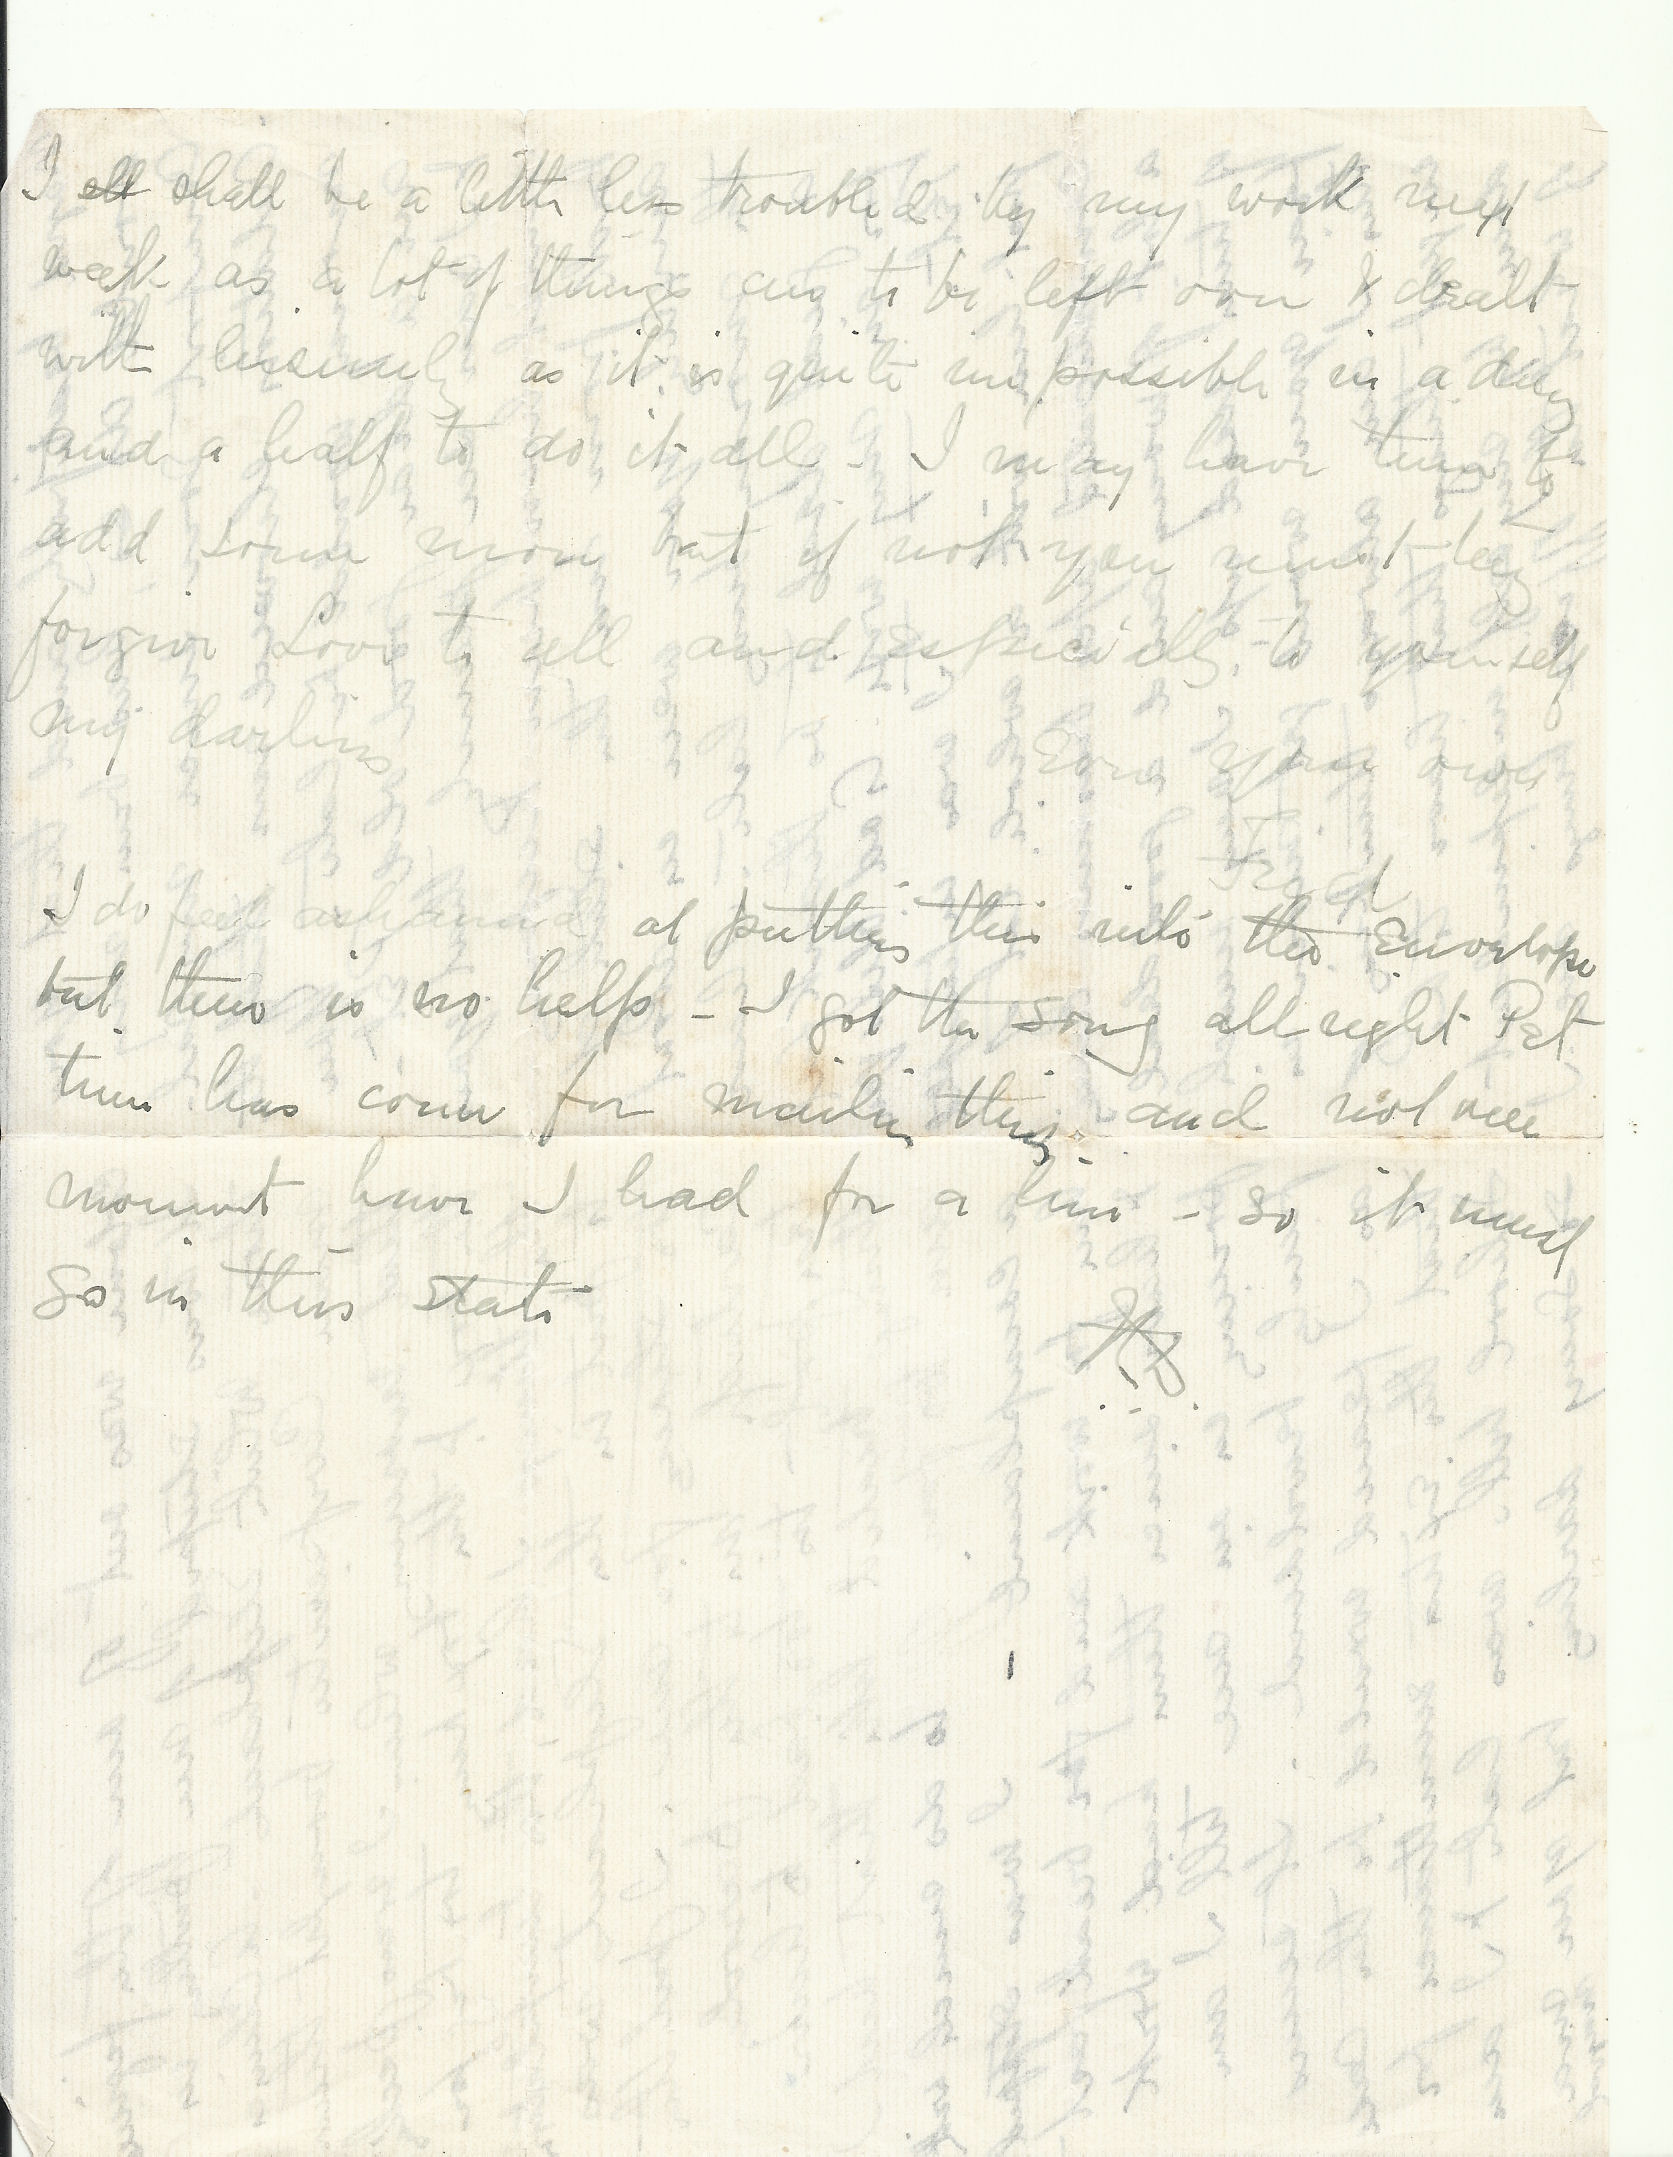 I shall be a little less troubled by my work next
week as a lot of things are to be left over & dealt
with leisurely as it is quite impossible in a day
and a half to do it all - I may have time to
add some more but if not you must try
forgive Love to all and especially to yourself
my darling
Ever your own
Fred
I do feel ashamed at putting this into the Envelope
but there is no help - I got the song all right Pet
time has come for mailing this and not one
moment have I had for a line - so it must
go in this state